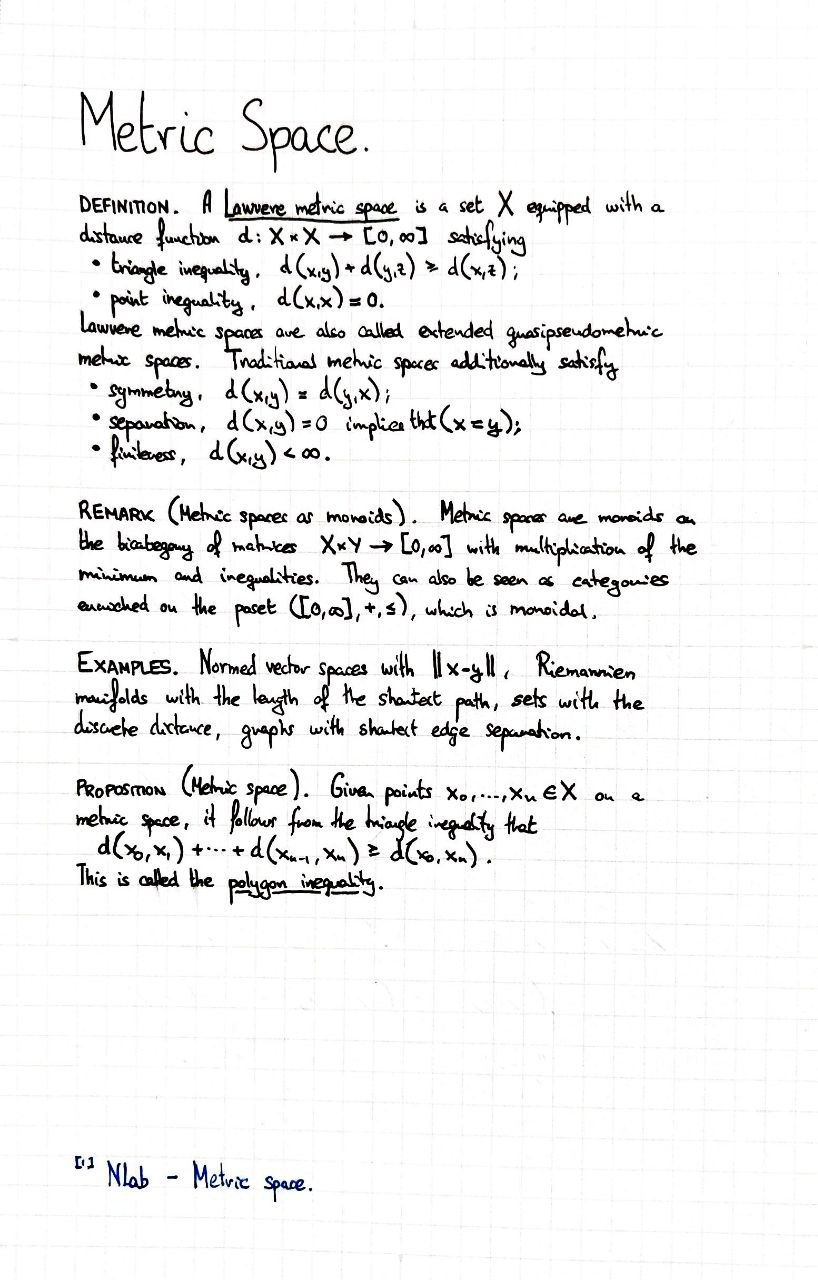 Metric Space.
DEFINITION. A Lawvere metric space is a set X equipped with a
distance function d: X × X → [0,∞] satisfying
• triangle inequality, d(x,y) + d(y,z) ≥ d(x,z);
• point inequality, d(x,x) = 0.
Lawvere metric spaces are also called extended quasipseudometric
metric spaces. Traditional metric spaces additionally satisfy
• symmetry, d(x,y) = d(y,x);
• separation, d(x,y) = 0 implies that (x = y);
• finiteness, d(x,y) < ∞.
REMARK (Metric spaces as monoids). Metric spaces are monoids on
the bicategory of matrices X×Y → [0,∞] with multiplication of the
minimum and inequalities. They can also be seen as categories
enriched on the poset ([0,∞],+,≤), which is monoidal.
EXAMPLES. Normed vector spaces with ||x-y||, Riemannien
manifolds with the length of the shortest path, sets with the
discrete distance, graphs with shortest edge separation.
PROPOSITION (Metric space). Given points x₀,...,xₙ ∈ X on a
metric space, it follows from the triangle inequality that
d(x₀,x₁) + ··· + d(xₙ₋₁,xₙ) ≥ d(x₀,xₙ).
This is called the polygon inequality.
[1] NLab - Metric space.